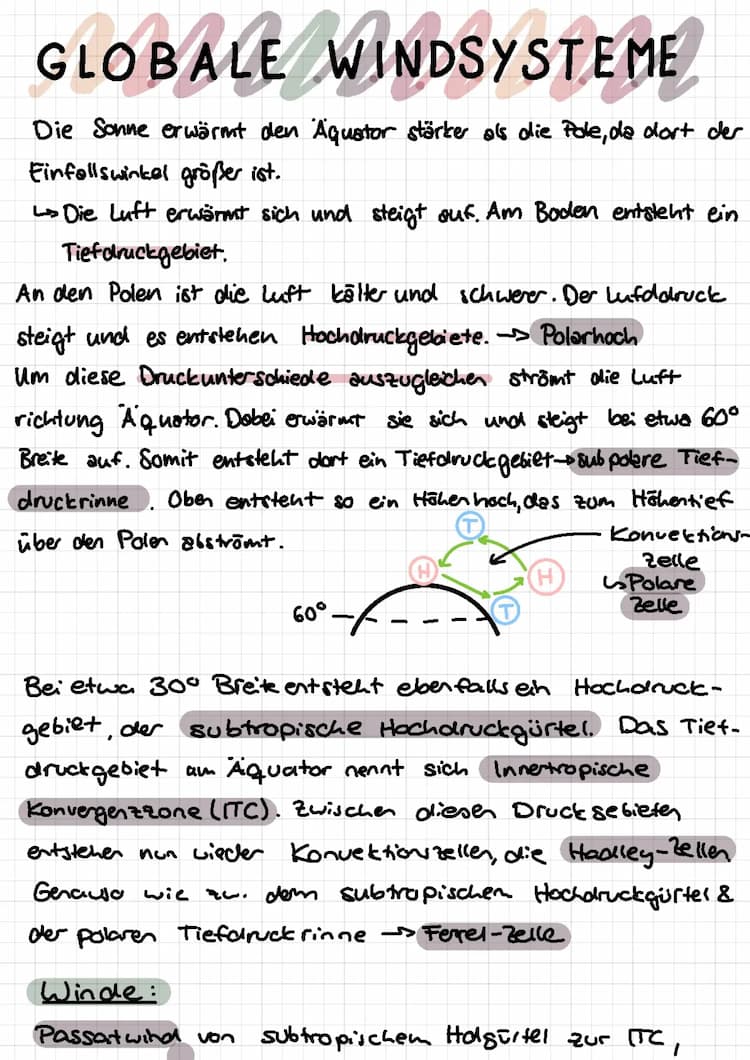 GLOBALE WINDSYSTEME
Die Sonne erwärmt den Äquator stärker als die Pole, da dort der
Einfallswinkel größer ist.
↳ Die Luft erwärmt sich und steigt auf. Am Boden entsteht ein
Tiefdruckgebiet.
An den Polen ist die Luft kälter und schwerer. Der Lufddruck
steigt und es entstehen Hochdruckgebiete. → Polarhoch
Um diese Druckunterschiede auszugleichen strömt die Luft
richtung Äquator. Dabei erwärmt sie sich und steigt bei etwa 60°
Breite auf. Somit entsteht dort ein Tiefdruckgebiet → subpolare Tief-
druckrinne. Oben entsteht so ein Höhenhoch, das zum Höhentief
über den Polen abströmt.
T
Konvektions-
zelle
H
H
↳ Polare
Zelle
T
60°
Bei etwa 30° Breite entsteht ebenfalls ein Hochdruck-
gebiet, der subtropische Hochdruckgürtel. Das Tief-
druckgebiet am Äquator nennt sich Innertropische
Konvergenzzone (ITC). Zwischen diesen Druckgebieten
entstehen nun wieder Konvektionszellen, die Hadley-Zellen
Genauso wie zw. dem subtropischen Hochdruckgürtel &
der polaren Tiefdruckrinne → Ferrel-Zelle
Winde:
Passatwind von subtropischem Hohgürtel zur ITC,